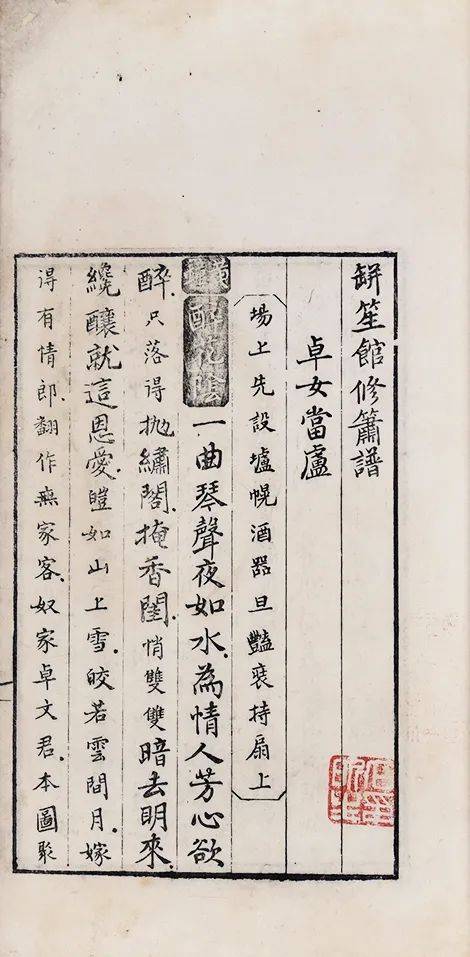 缾笙館修簫譜
卓女當壚
場上先設壚幌酒器旦豔裝持扇上
醉花陰一曲琴聲夜如水為情人芳心欲
醉只落得抛繡閣掩香閨悄雙雙暗去明來
纔釀就這恩愛皚如山上雪皎若雲間月嫁
得有情郎翻作無家客奴家卓文君本圖聚